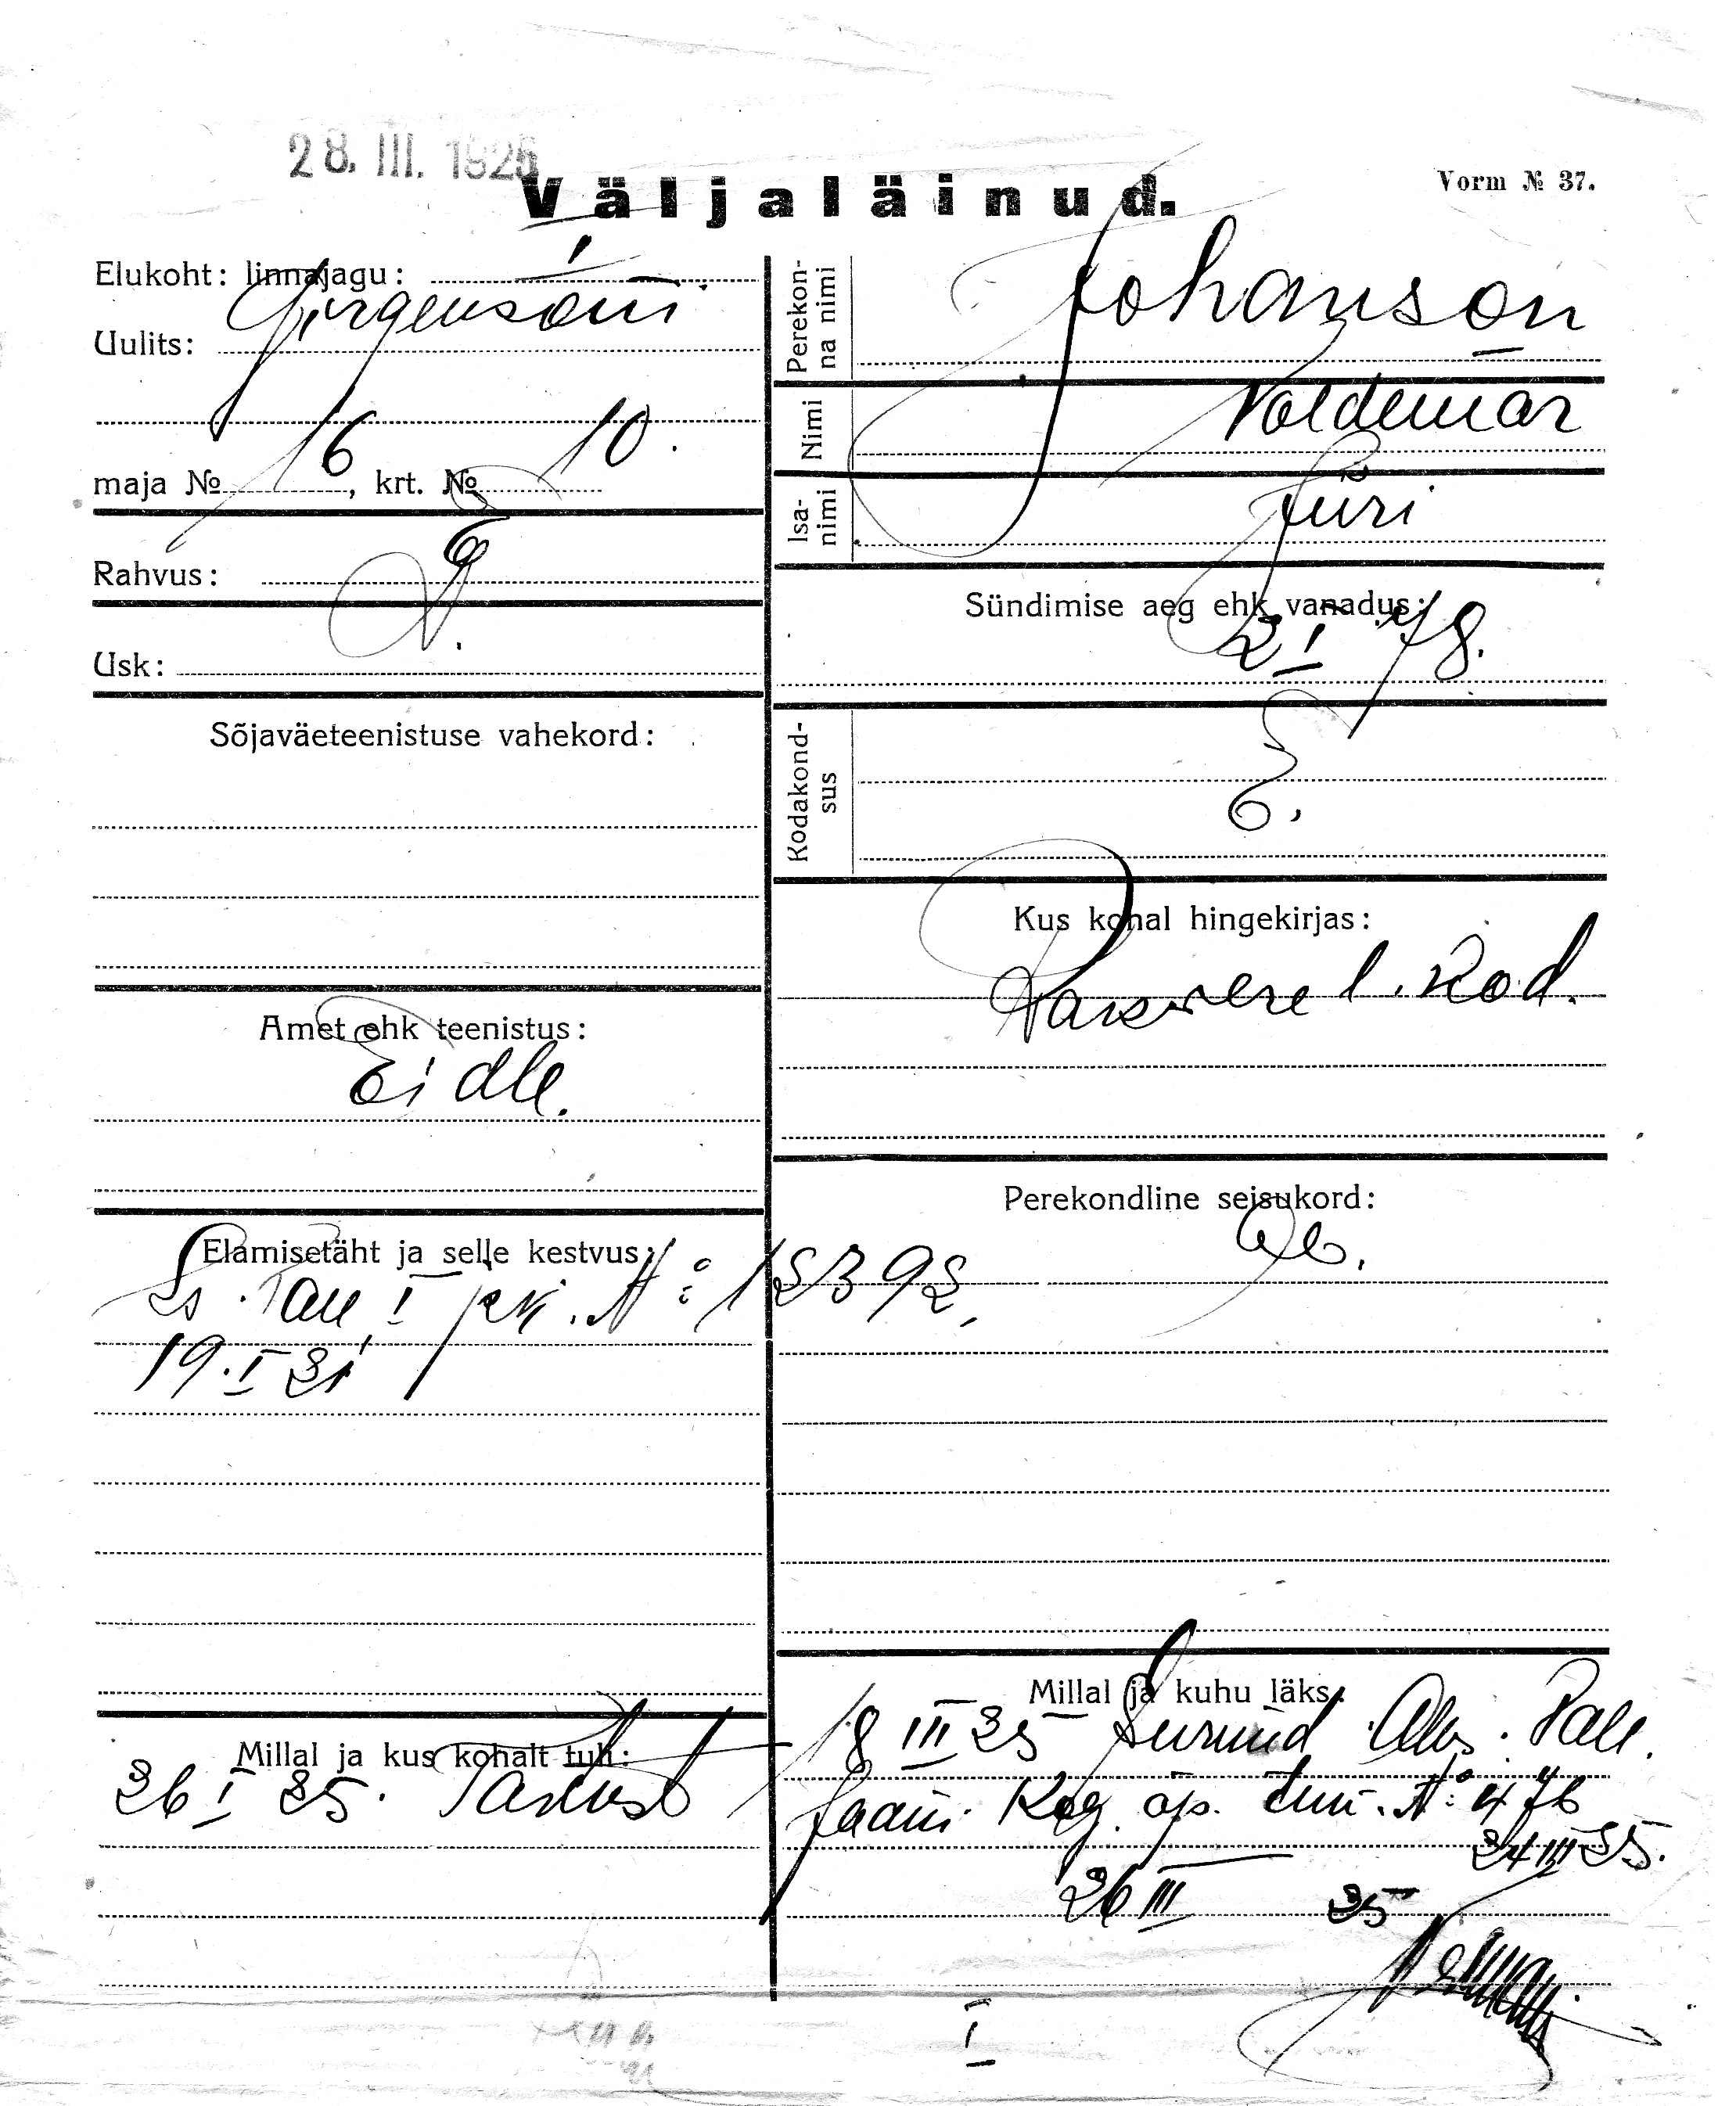 28. III. 1925
Väljaläinud.
Vorm № 37.
Elukoht: linnajagu: I
Uulits: Jürgensoni
maja № 16, krt. № 10.
Rahvus: E
Usk:
Sõjaväeteenistuse vahekord:
Amet ehk teenistus:
Elamisetäht ja selle kestvus:
Is. Tall I jsk. №: 12392,
19. I 21
Millal ja kus kohalt tuli:
26 I 25. Tartust
Perekonna nimi
Johanson
Nimi
Voldemar
Isanimi
Jüri
Sündimise aeg ehk vanadus:
2 I 78.
Kodakondsus
E.
Kus kohal hingekirjas:
Rakvere l. kod.
Perekondline seisukord:
Millal ja kuhu läks:
18 III 25 Surnud Tall.
Jaani Kog. õp. tun. №: 476
24 III 25.
26 III 25
I